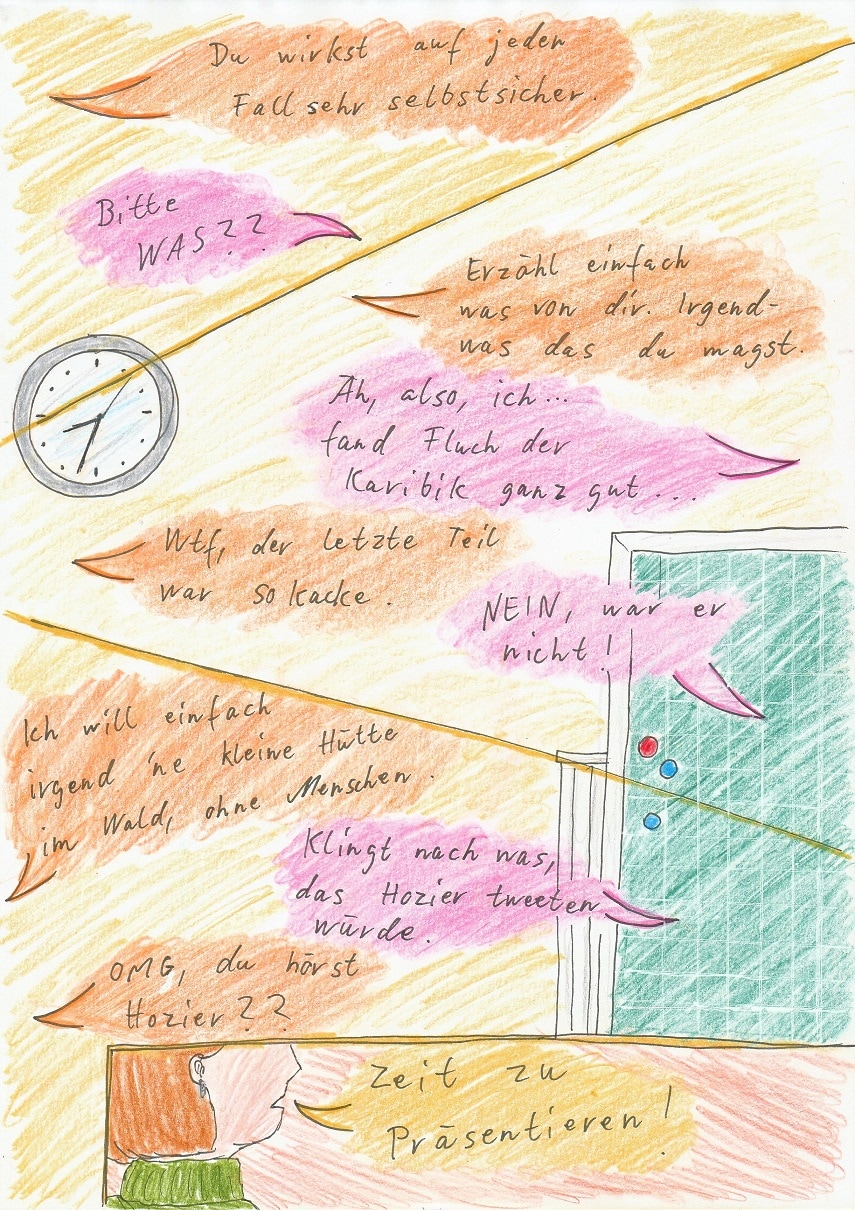 Du wirkst auf jeden
Fall sehr selbstsicher.
Bitte
WAS??
Erzähl einfach
was von dir. Irgend-
was das du magst.
Äh, also, ich...
fand Fluch der
Karibik ganz gut...
Wtf, der letzte Teil
war so kacke.
NEIN, war er
nicht!
Ich will einfach
irgend 'ne kleine Hütte
im Wald, ohne Menschen.
Klingt nach was,
das Hozier tweeten
würde.
OMG, du hörst
Hozier??
Zeit zu
Präsentieren!